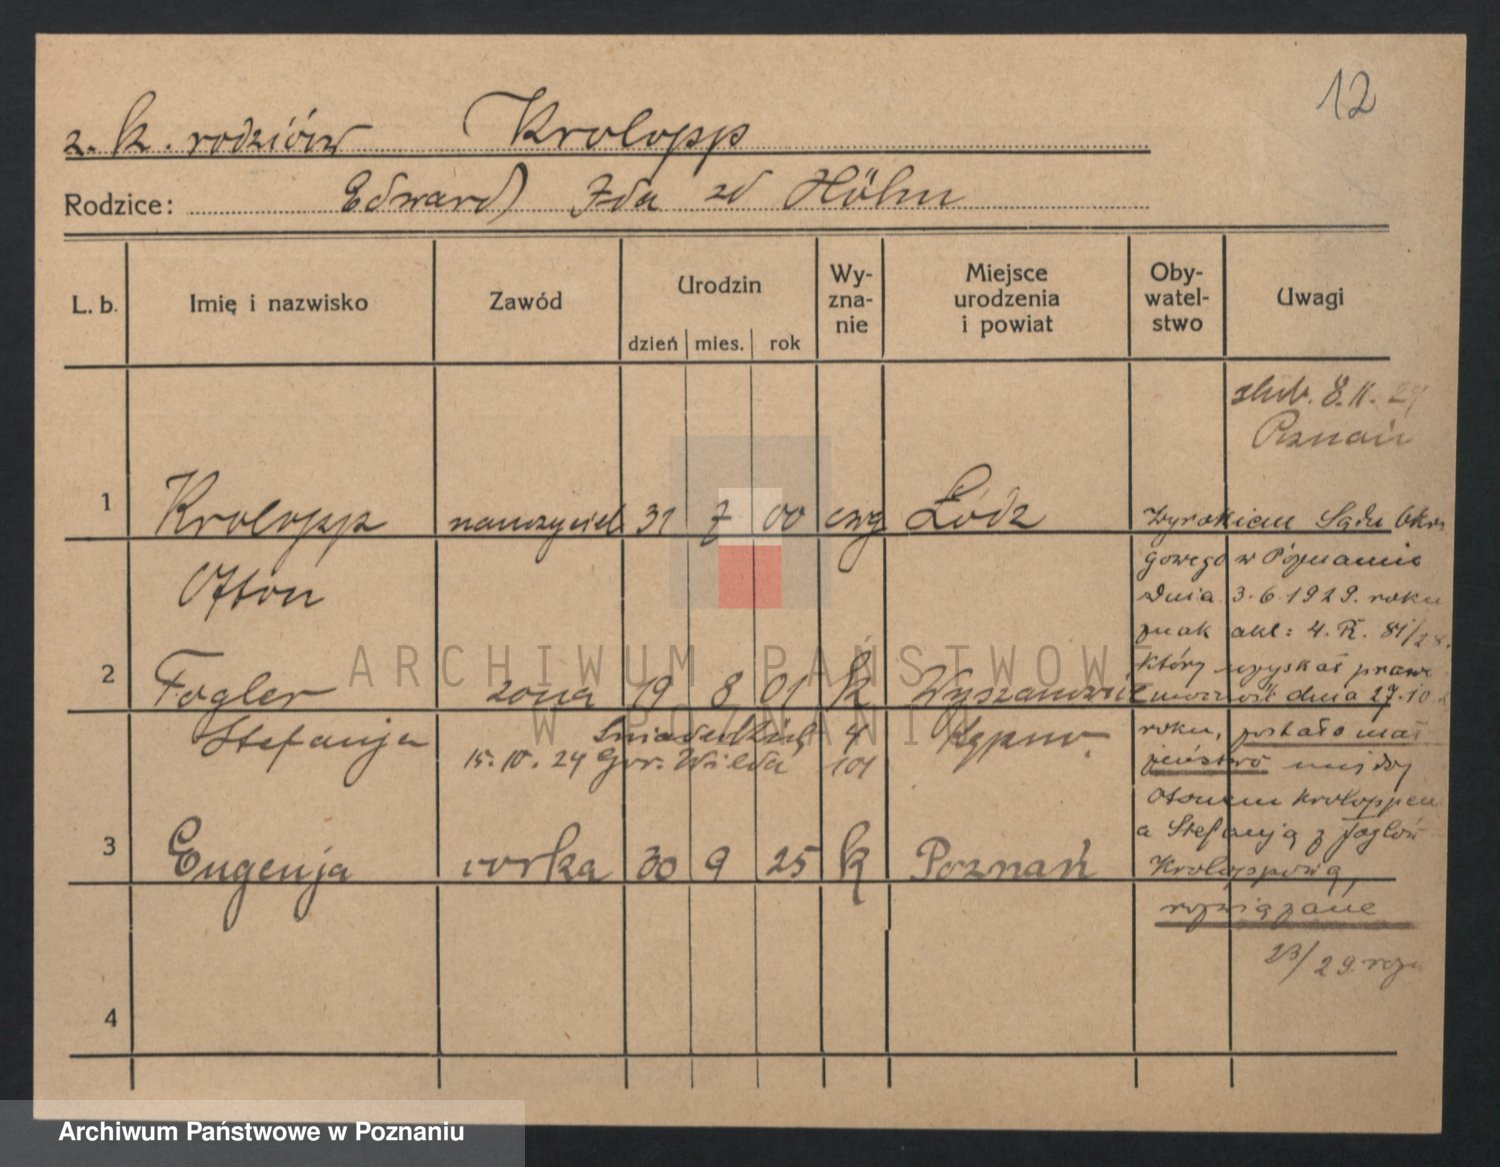 12
z. k. rodziców Krolopp
Rodzice: Edward Ida zd Höhn
L. b. Imię i nazwisko Zawód Urodzin dzień mies. rok Wy-zna-nie Miejsce urodzenia i powiat Oby-watel-stwo Uwagi
ślub. 8.11.
Poznań
1 Krolopp nauczyciel 31 7 00 ewg Łódz
Otton
2 Fogler żona 19 8 01 k
Stefanja Kępno.
15.10.24 Gór. Wilda 101
3 Eugenja córka 30 9 25 k Poznań
4
Wyrokiem Sądu Okrę
gowego w Poznaniu
dnia 3.6.1929. roku
znak akt: 4. R. 81/28.
który uzyskał prawo
mocność dnia 27.10
roku, zostało mał
żeństwo między
Ottonem Kroloppem
a Stefanją z Foglerów
Kroloppową,
rozwiązane
ARCHIWUM PAŃSTWOWE
W POZNANIU
Archiwum Państwowe w Poznaniu